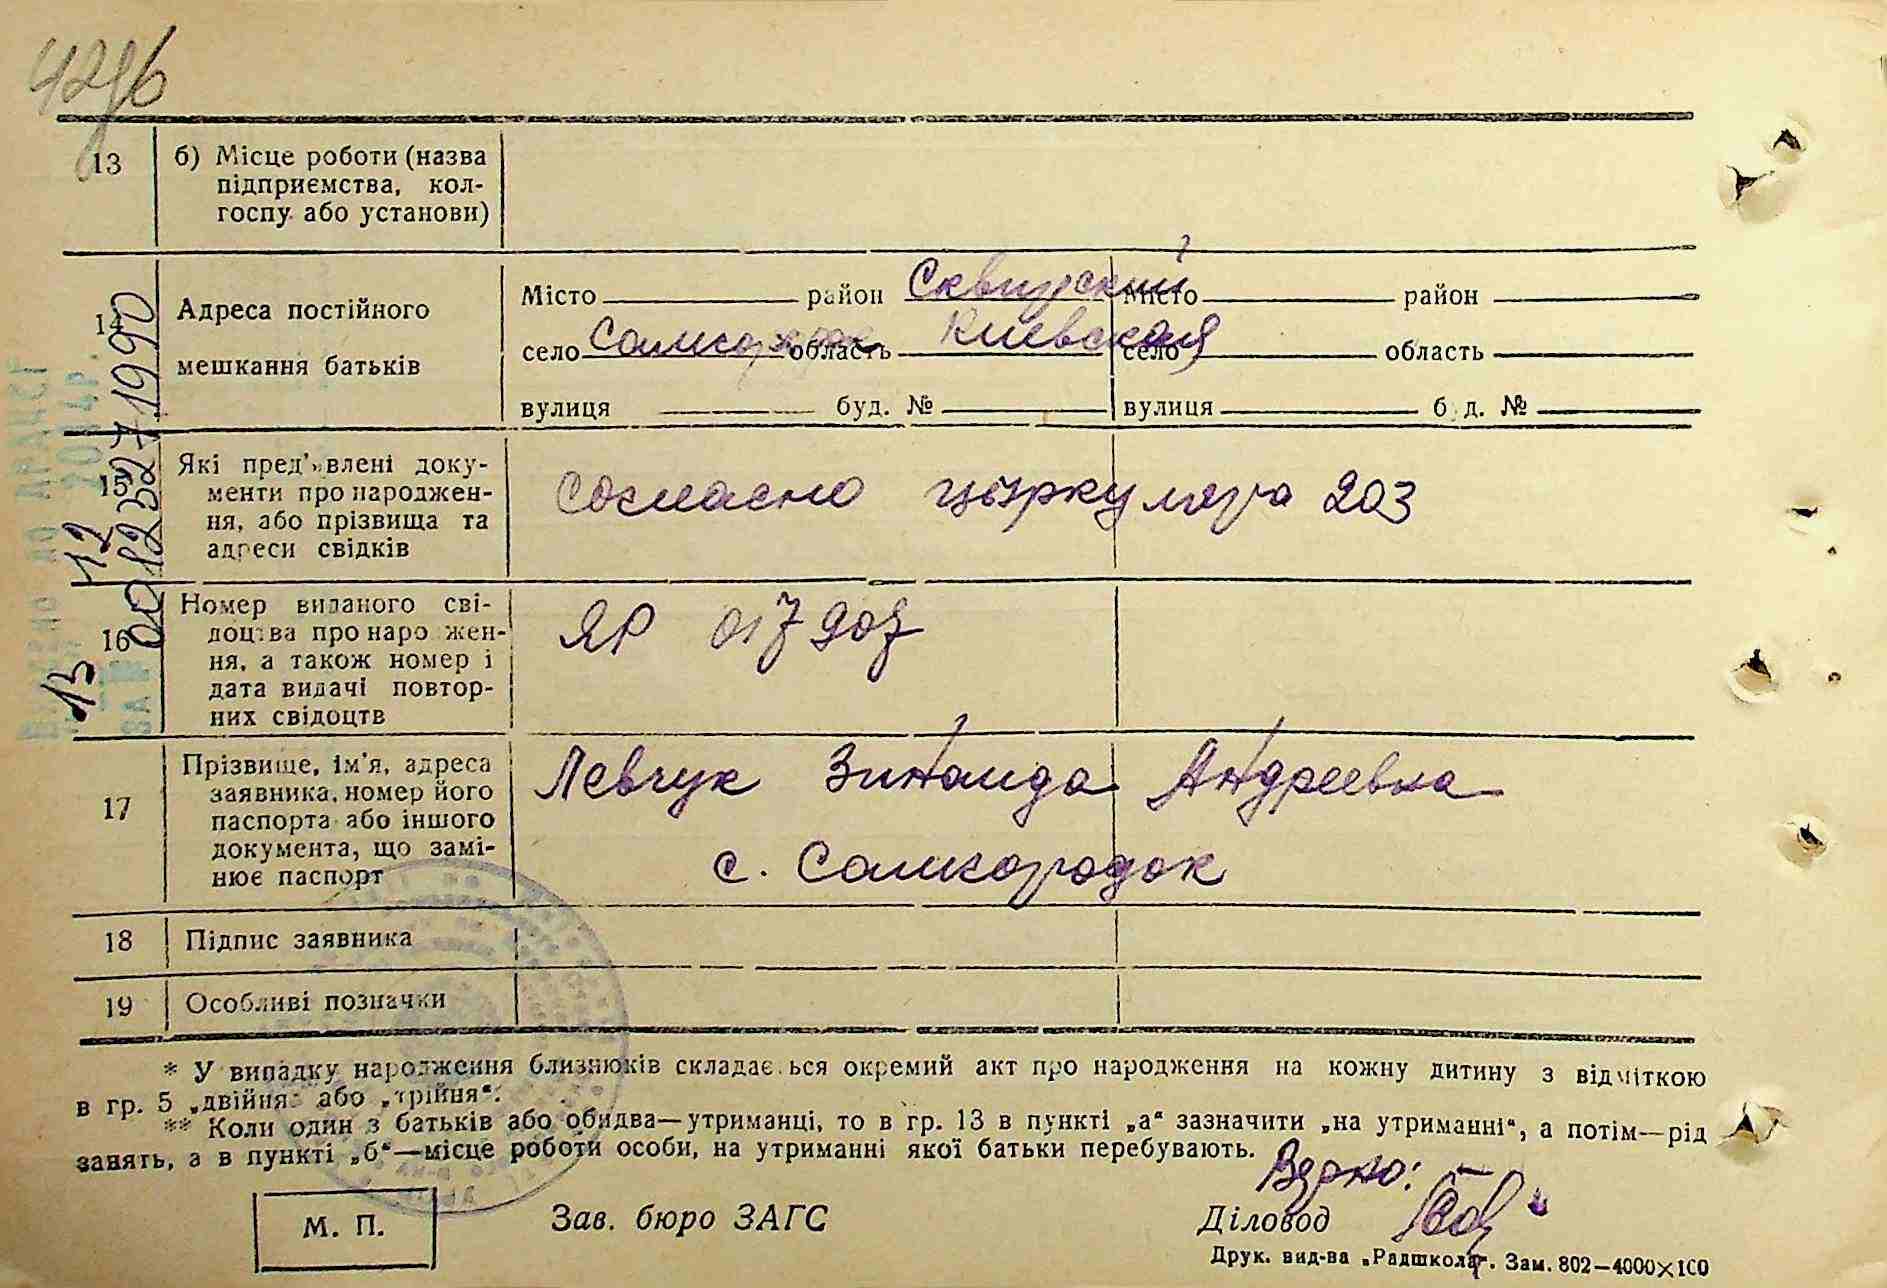 4296
13 б) Місце роботи (назва
підприємства, кол-
госпу або установи)
14 Адреса постійного
мешкання батьків
Місто район Сквирский Місто район
село Самгородок область Киевская село область
вулиця буд. № вулиця буд. №
15 Які пред'явлені доку-
менти про народжен-
ня, або прізвища та
адреси свідків
Согласно цыркуляра 203
16 Номер виданого сві-
доцтва про народжен-
ня, а також номер і
дата видачі повтор-
них свідоцтв
ЯР 017907
17 Прізвище, ім'я, адреса
заявника, номер його
паспорта або іншого
документа, що замі-
нює паспорт
Левчук Зинаида Андреевна
с. Самгородок
18 Підпис заявника
19 Особливі позначки
* У випадку народження близнюків складається окремий акт про народження на кожну дитину з відміткою
в гр. 5 „двійня“ або „трійня“.
** Коли один з батьків або обидва—утриманці, то в гр. 13 в пункті „а“ зазначити „на утриманні“, а потім—рід
занять, а в пункті „б“—місце роботи особи, на утриманні якої батьки перебувають.
Верно:
М. П. Зав. бюро ЗАГС Діловод
Друк. вид-ва „Радшкола“. Зам. 802—4000×100